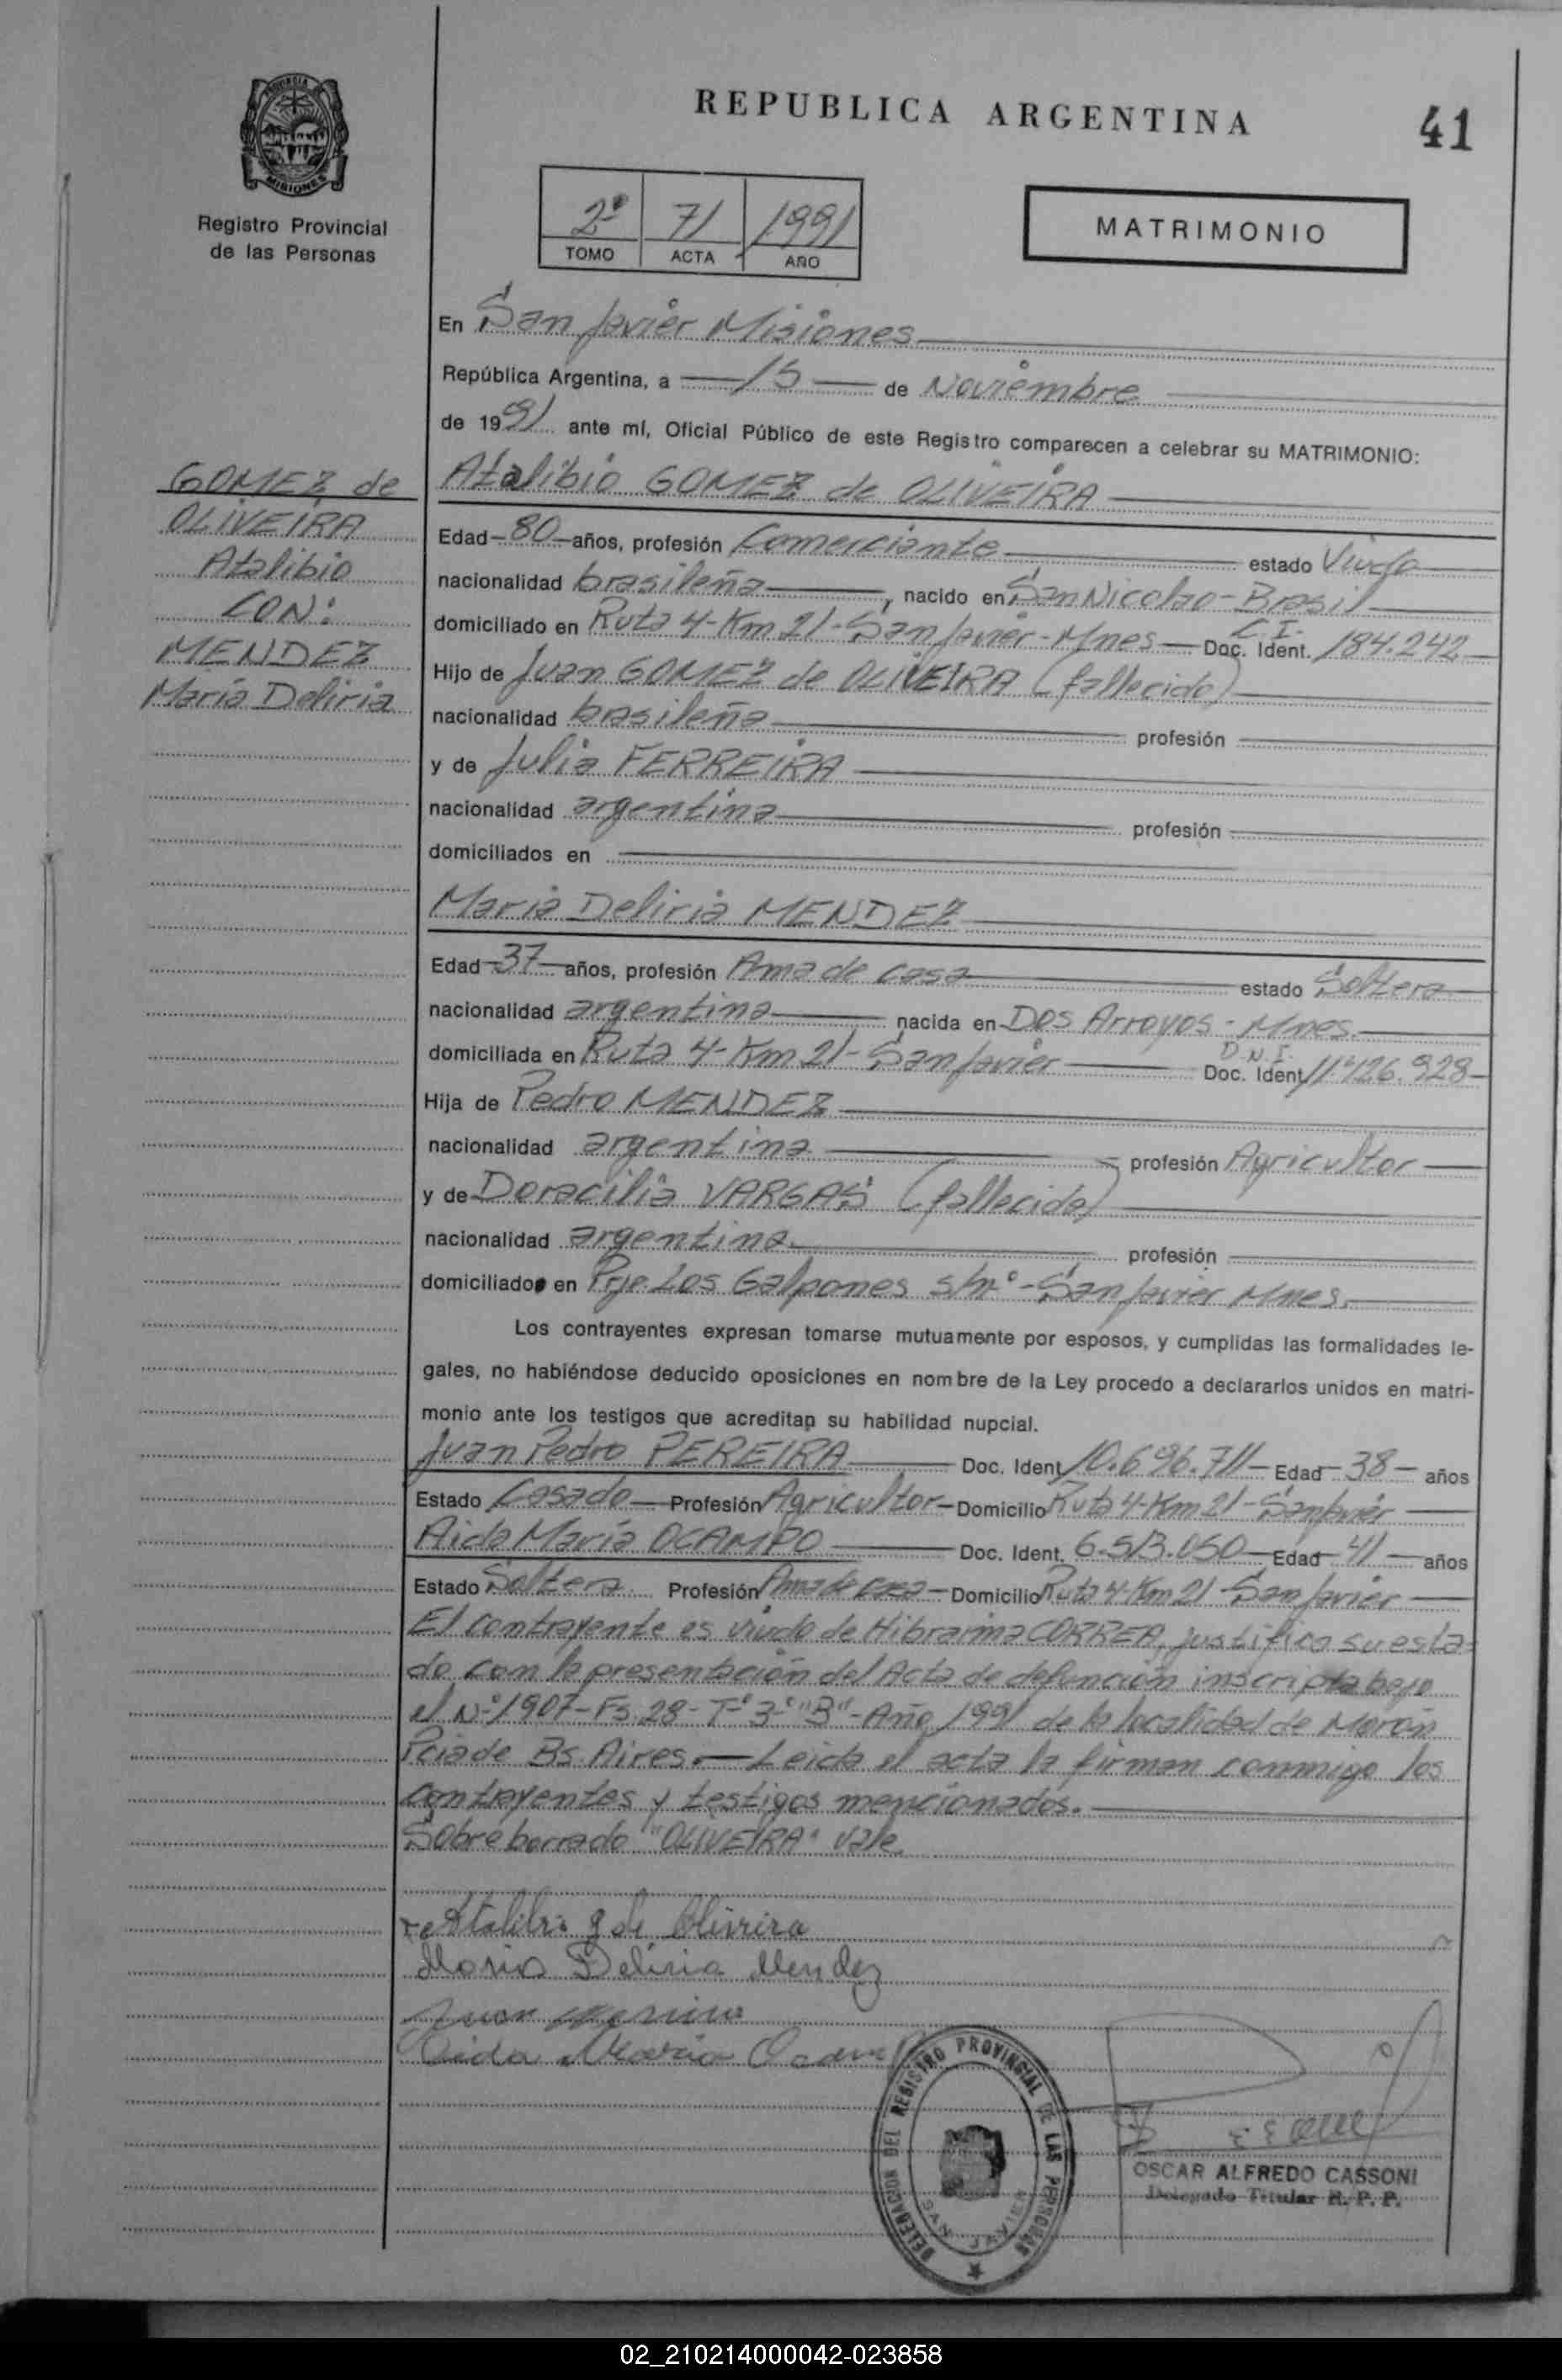 REPUBLICA ARGENTINA
41
PROVINCIA DE MISIONES
Registro Provincial
de las Personas
2º 71 1991
TOMO ACTA AÑO
MATRIMONIO
En San Javier Misiones
República Argentina, a 15 de Noviembre
de 1991 ante mí, Oficial Público de este Registro comparecen a celebrar su MATRIMONIO:
GOMEZ de
OLIVEIRA
Atalibio
CON:
MENDEZ
María Deliria
Atalibio GOMEZ de OLIVEIRA
Edad 80 años, profesión Comerciante estado Viudo
nacionalidad brasileña, nacido en San Nicolao - Brasil
domiciliado en Ruta 4-Km 21-San Javier-Mnes Doc. Ident. C.I. 184.242
Hijo de Juan GOMEZ de OLIVEIRA (fallecido)
nacionalidad brasileña profesión
y de Julia FERREIRA
nacionalidad argentina profesión
domiciliados en
María Deliria MENDEZ
Edad 37 años, profesión Ama de casa estado Soltera
nacionalidad argentina nacida en Dos Arroyos - Mnes.
domiciliada en Ruta 4-Km 21-San Javier Doc. Ident. D.N.I. 11.426.928
Hija de Pedro MENDEZ
nacionalidad argentina profesión Agricultor
y de Doracilia VARGAS (fallecida)
nacionalidad argentina profesión
domiciliado en Pje. Los Galpones s/nº-San Javier Mnes.
Los contrayentes expresan tomarse mutuamente por esposos, y cumplidas las formalidades le-
gales, no habiéndose deducido oposiciones en nombre de la Ley procedo a declararlos unidos en matri-
monio ante los testigos que acreditan su habilidad nupcial.
Juan Pedro PEREIRA Doc. Ident. 10.696.711 Edad 38 años
Estado Casado Profesión Agricultor Domicilio Ruta 4-Km 21-San Javier
Aida María OCAMPO Doc. Ident. 6.513.050 Edad 41 años
Estado Soltera Profesión Ama de casa Domicilio Ruta 4-Km 21-San Javier
El contrayente es viudo de Hibraima CORREA, justifica su esta-
do con la presentación del Acta de defunción inscripta bajo
el Nº 1907-Fs.28-Tº 3º "B"-Año 1991 de la localidad de Morón
Pcia de Bs. Aires.— Leida el acta la firman conmigo los
contrayentes y testigos mencionados.
Sobre borrado "OLIVEIRA" vale.
Atalibio g de Olivira
Maria Deliria Mendez
Juan
Aida Maria Ocam
DELEGACION DEL REGISTRO PROVINCIAL DE LAS PERSONAS
SAN JAVIER
OSCAR ALFREDO CASSONI
Delegado Titular R. P. P.
02_210214000042-023858